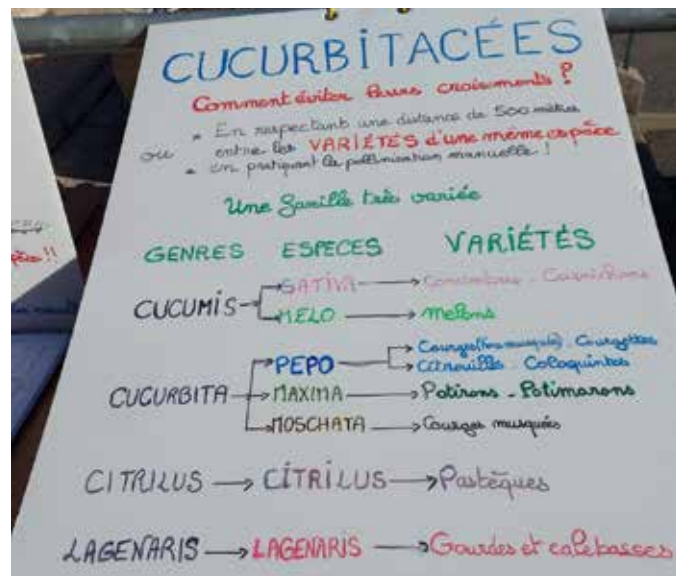 CUCURBITACÉES
Comment éviter leurs croisements ?
* En respectant une distance de 500 mètres
ou entre les VARIÉTÉS d'une même espèce
* en pratiquant la pollinisation manuelle !
Une famille très variée
GENRES ESPECES VARIÉTÉS
CUCUMIS → SATIVA → Concombres - Cornichons
→ MELO → melons
CUCURBITA → PEPO → Courges (non musquée) - Courgettes
→ Citrouilles - Coloquintes
→ MAXIMA → Potirons - Potimarons
→ MOSCHATA → Courges musquées
CITRILUS → CITRILUS → Pastèques
LAGENARIS → LAGENARIS → Gourdes et calebasses